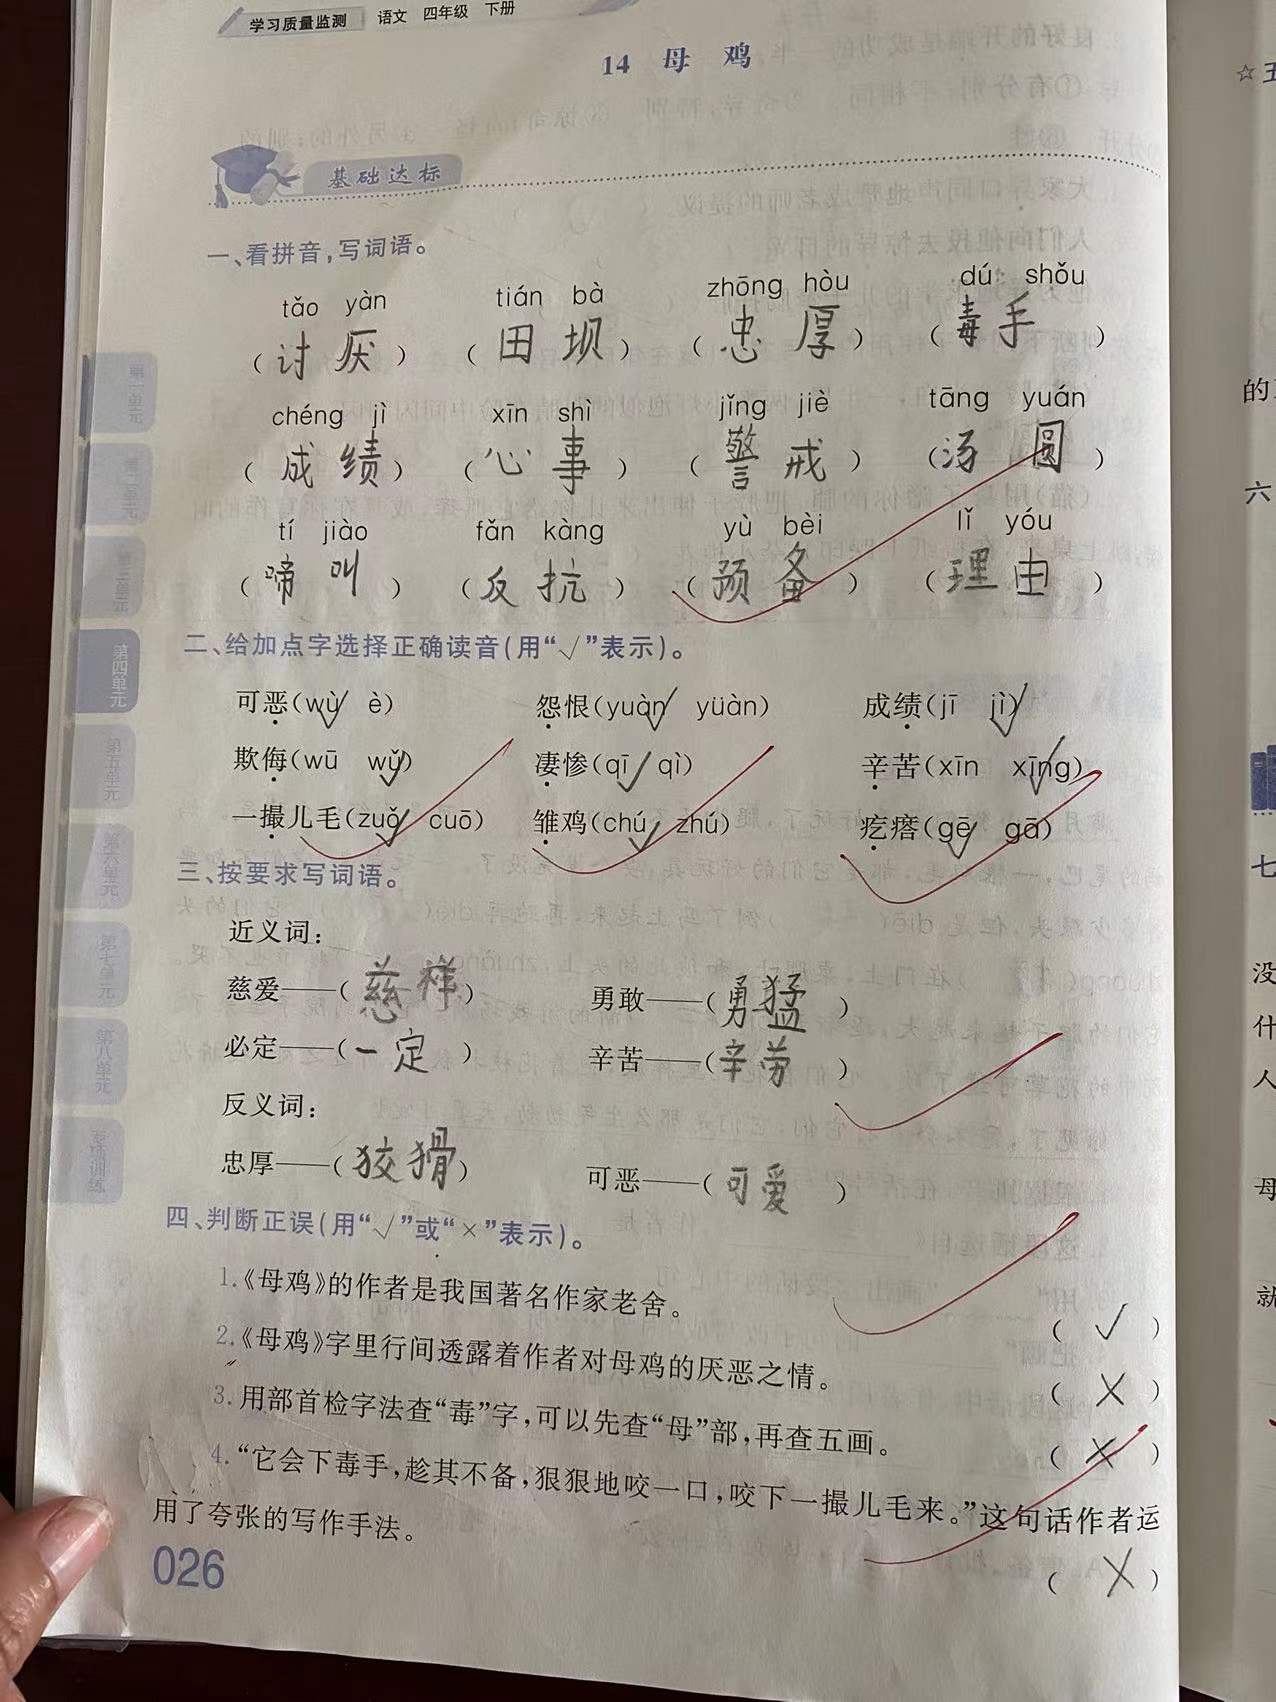 学习质量监测 语文 四年级 下册
14 母鸡
基础达标
一、看拼音,写词语。
tǎo yàn tián bà zhōng hòu dú shǒu
(讨厌) (田坝) (忠厚) (毒手)
chéng jì xīn shì jǐng jiè tāng yuán
(成绩) (心事) (警戒) (汤圆)
tí jiào fǎn kàng yù bèi lǐ yóu
(啼叫) (反抗) (预备) (理由)
二、给加点字选择正确读音(用“√”表示)。
可恶(wù√ è) 怨恨(yuàn√ yüàn) 成绩(jī jì√)
欺侮(wū wǔ√) 凄惨(qī√ qì) 辛苦(xīn xīng√)
一撮儿毛(zuǒ√ cuō) 雏鸡(chú√ zhú) 疙瘩(gē√ gā)
三、按要求写词语。
近义词:
慈爱——(慈祥) 勇敢——(勇猛)
必定——(一定) 辛苦——(辛劳)
反义词:
忠厚——(狡猾) 可恶——(可爱)
四、判断正误(用“√”或“×”表示)。
1.《母鸡》的作者是我国著名作家老舍。 (√)
2.《母鸡》字里行间透露着作者对母鸡的厌恶之情。 (×)
3.用部首检字法查“毒”字,可以先查“母”部,再查五画。 (×)
4.“它会下毒手,趁其不备,狠狠地咬一口,咬下一撮儿毛来。”这句话作者运
用了夸张的写作手法。 (×)
026
第一单元
第二单元
第三单元
第四单元
第五单元
第六单元
第七单元
第八单元
专项训练
☆五
的
六
七
没
什
人
母
就